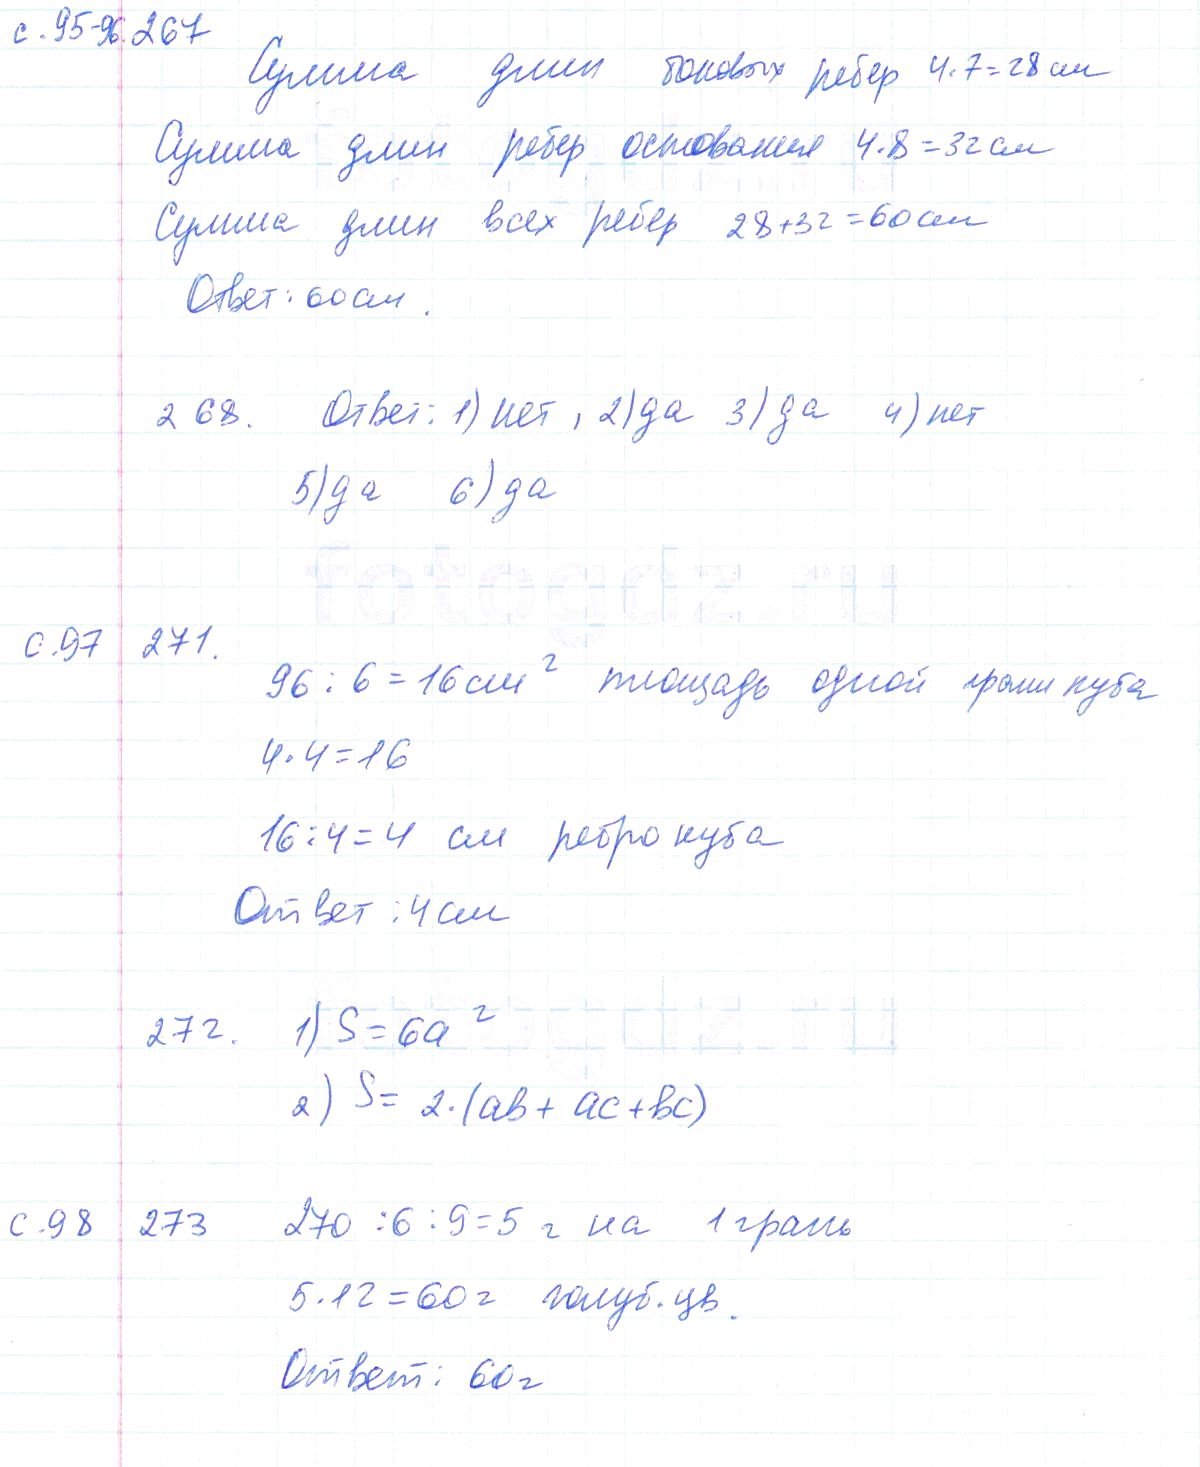 с.95-96. 267
Сумма длин боковых ребер 4·7=28 см
Сумма длин ребер основания 4·8=32 см
Сумма длин всех ребер 28+32=60 см
Ответ: 60 см.
268. Ответ: 1) нет, 2) да 3) да 4) нет
5) да 6) да
fotogdz.ru
с.97 271.
96:6=16 см² площадь одной грани куба
4·4=16
16:4=4 см ребро куба
Ответ: 4 см
272. 1) S=6a²
2) S= 2·(ab+ac+bc)
с.98 273 270:6:9=5 г на 1 грань
5·12=60 г голуб. цв.
Ответ: 60 г